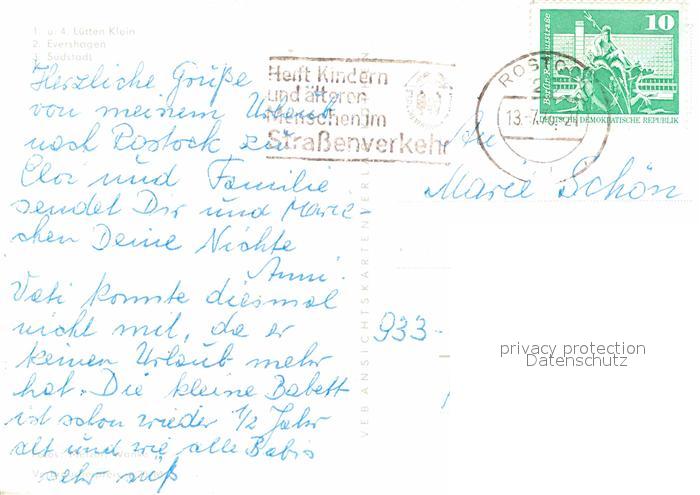 1. u. 4. Lütten Klein
2. Evershagen
3. Südstadt
Herzliche Grüße
von meinem Urlaub
nach Rostock zu
und Familie
sendet Dir und Marie-
chen Deine Nichte
Anni.
Vati konnte diesmal
nicht mit, da er
keinen Urlaub mehr
hat. Die kleine Babett
ist schon wieder 1/2 Jahr
alt und wie alle Babis
sehr süß
Helft Kindern
und älteren
Menschen im
Straßenverkehr
ROSTOCK
13.-7.
10
DEUTSCHE DEMOKRATISCHE REPUBLIK
An
Marie Schön
933-
VEB ANSICHTSKARTENVERL
privacy protection
Datenschutz